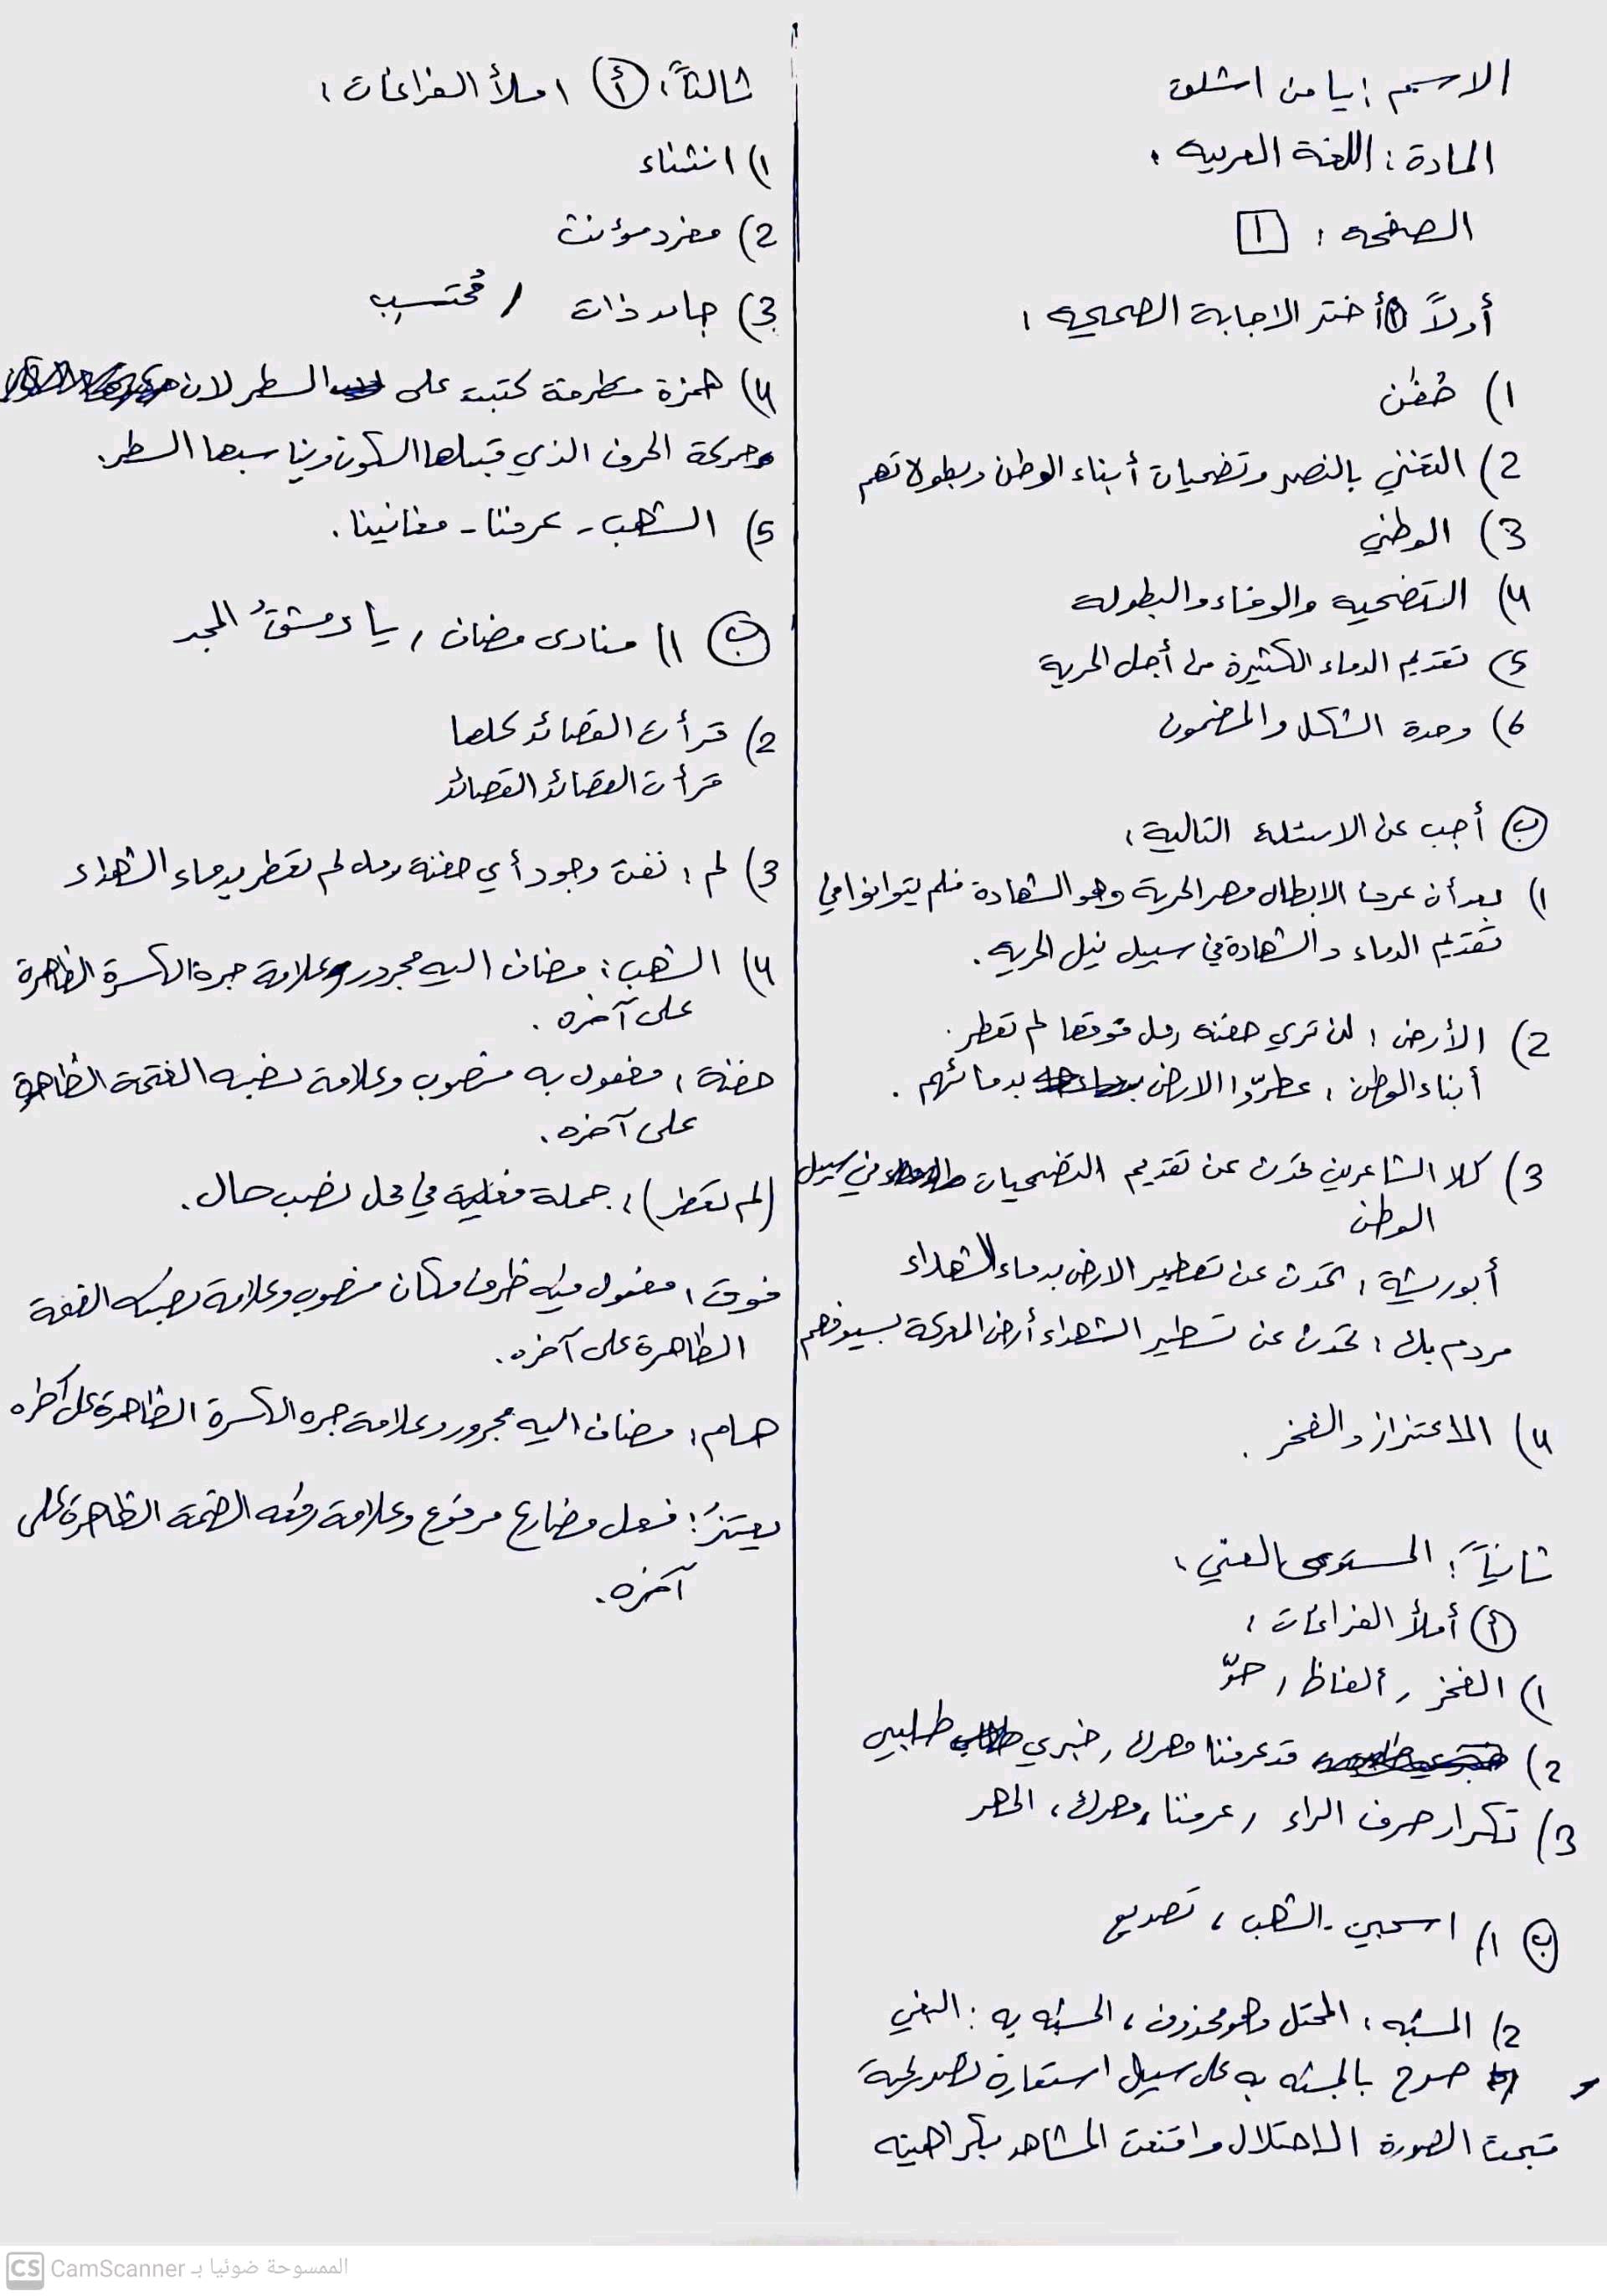 الاسم : يا من اشلق
المادة : اللغة العربيه :
الصفحه : 1
أولاً أ أختر الاجابة الصحيحه :
1) ضفن
2) التغني بالنصر وتضحيات أبناء الوطن وبطولاتهم
3) الوطني
4) التضحيه والوفاء والبطوله
5) تقديم الدماء الكثيرة من أجل الحرية
6) وحدة الشكل والمضمون
ب أجب عن الاسئله التالية :
1) بعد أن عرف الابطال مهر الحرية وهو الشهادة فلم يتوانوا في
تقديم الدماء والشهادة في سبيل نيل الحريه .
2) الأرض : لن تري حفنه رمل فوقها لم تعطر .
أبناء الوطن : عطرّوا الارض بدمائهم .
3) كلا الشاعرين تحدث عن تقديم التضحيات في سبيل
الوطن
أبو ريشة : تحدث عن تعطير الارض بدماء الشهداء
مردم بك : تحدث عن تسطير الشهداء أرض المعركة بسيوفهم
4) الاعتزاز والفخر .
ثانياً : المستوى الفني :
أ أملأ الفراغات :
1) الفخر , ألفاظ ,
2) قد عرفنا مهرك , خبري طلبي
3) تكرار حرف الراء , عرفنا، مهرك ، المهر
ب 1) اسحبي - الشهب ، تصريع
2) المشبه : المحتل وهو محذوف ، المشبه به : البغي
صرح بالمشبه به على سبيل استعارة تصريحية
قبحت الصورة الاحتلال واقنعت المشاهد بكراهيته
ثالثاً : أ املأ الفراغات :
1) انثناء
2) مفرد مؤنث
3) جامد ذات / مُحتسِب
4) همزة متطرفة كتبت على السطر لان
حركة الحرف الذي قبلها السكون ويناسبها السطر.
5) الشهب - عرفنا - مغانينا .
ب 1) منادى مضاف , يا دمشقُ المجد
2) قرأت القصائد كلها
قرأت القصائد القصائد
3) لم : نفت وجود أي حفنة رمل لم تعطر بدماء الشهداء
4) الشهب : مضاف اليه مجرور وعلامة جرة الكسرة الظاهرة
على آخره .
حفنة : مفعول به منصوب وعلامة نصبه الفتحة الظاهرة
على آخره .
(لم تعطر) : جملة فعلية في محل نصب حال .
فوق : مفعول فيه ظرف مكان منصوب وعلامة نصبه الفتحة
الظاهرة على آخره .
هام : مضاف اليه مجرور وعلامة جره الكسرة الظاهرة على آخره
يعتزُ : فعل مضارع مرفوع وعلامة رفعه الضمة الظاهرة على
آخره .
CS CamScanner الممسوحة ضوئيا بـ